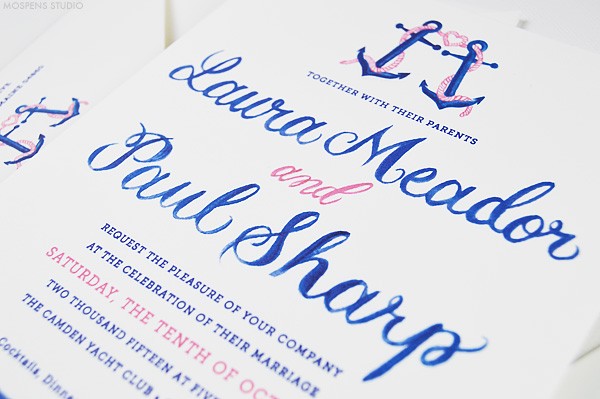 MOSPENS STUDIO
TOGETHER WITH THEIR PARENTS
Laura Meador
and
Paul Sharp
REQUEST THE PLEASURE OF YOUR COMPANY
AT THE CELEBRATION OF THEIR MARRIAGE
SATURDAY, THE TENTH OF OCT
TWO THOUSAND FIFTEEN AT FIVE
THE CAMDEN YACHT CLUB
Cocktails, Dinn